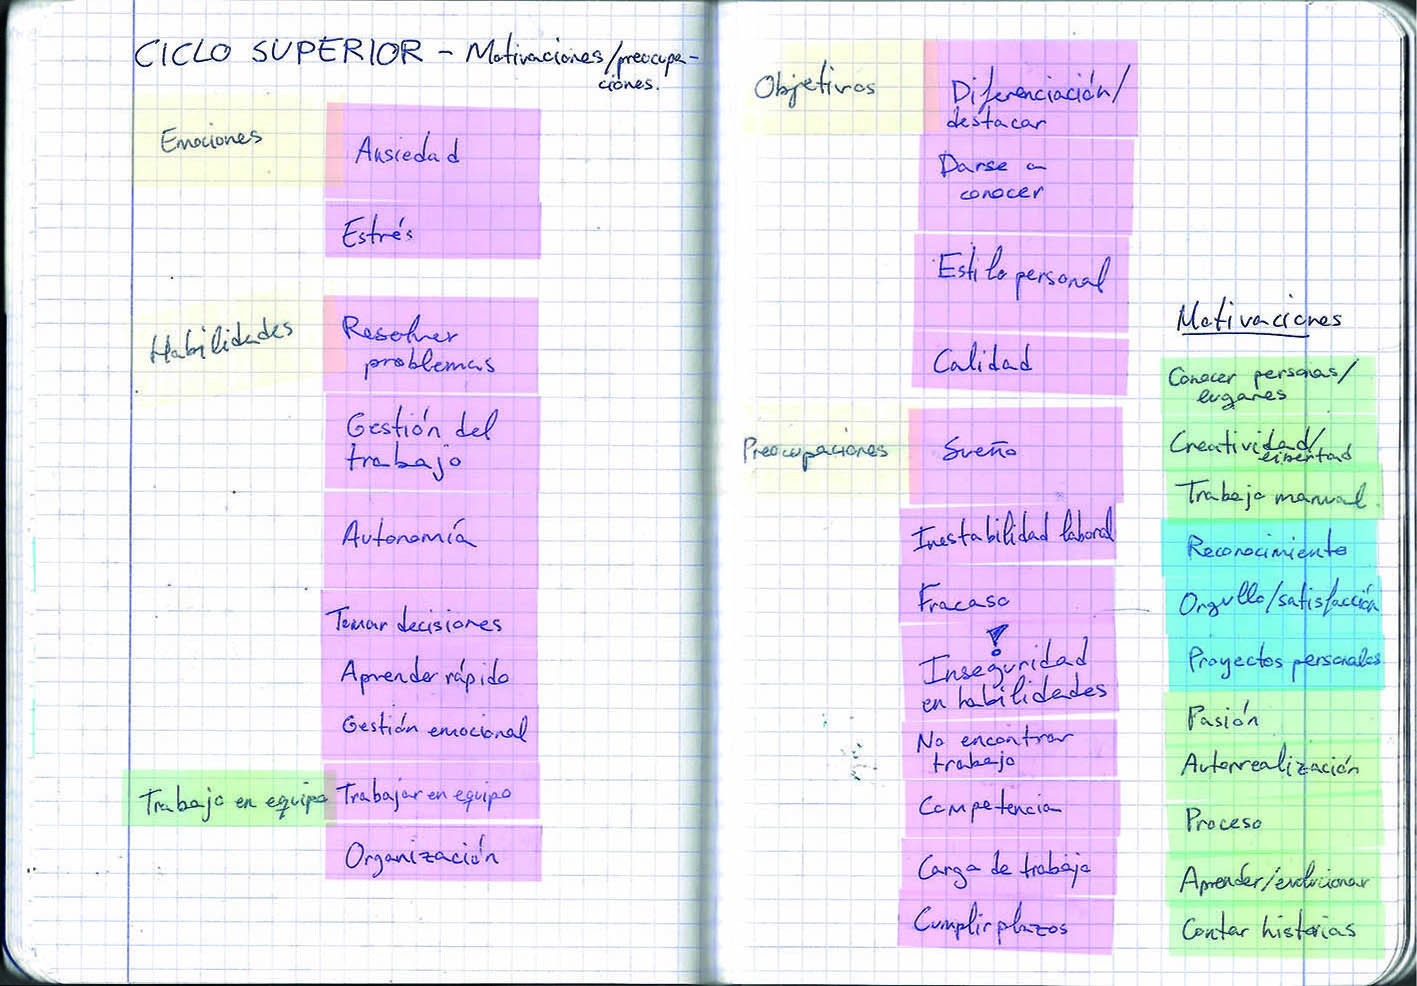 CICLO SUPERIOR - Motivaciones/preocupa-
ciones.
Emociones
Ansiedad
Estrés
Habilidades
Resolver
problemas
Gestión del
trabajo
Autonomía
Tomar decisiones
Aprender rápido
Gestión emocional
Trabajo en equipo
Trabajar en equipo
Organización
Objetivos
Diferenciación/
destacar
Darse a
conocer
Estilo personal
Calidad
Preocupaciones
Sueño
Inestabilidad laboral
Fracaso
!
Inseguridad
en habilidades
No encontrar
trabajo
Competencia
Carga de trabajo
Cumplir plazos
Motivaciones
Conocer personas/
lugares
Creatividad/
libertad
Trabajo manual.
Reconocimiento
Orgullo/satisfacción
Proyectos personales
Pasión
Autorrealización
Proceso
Aprender/evolucionar
Contar historias